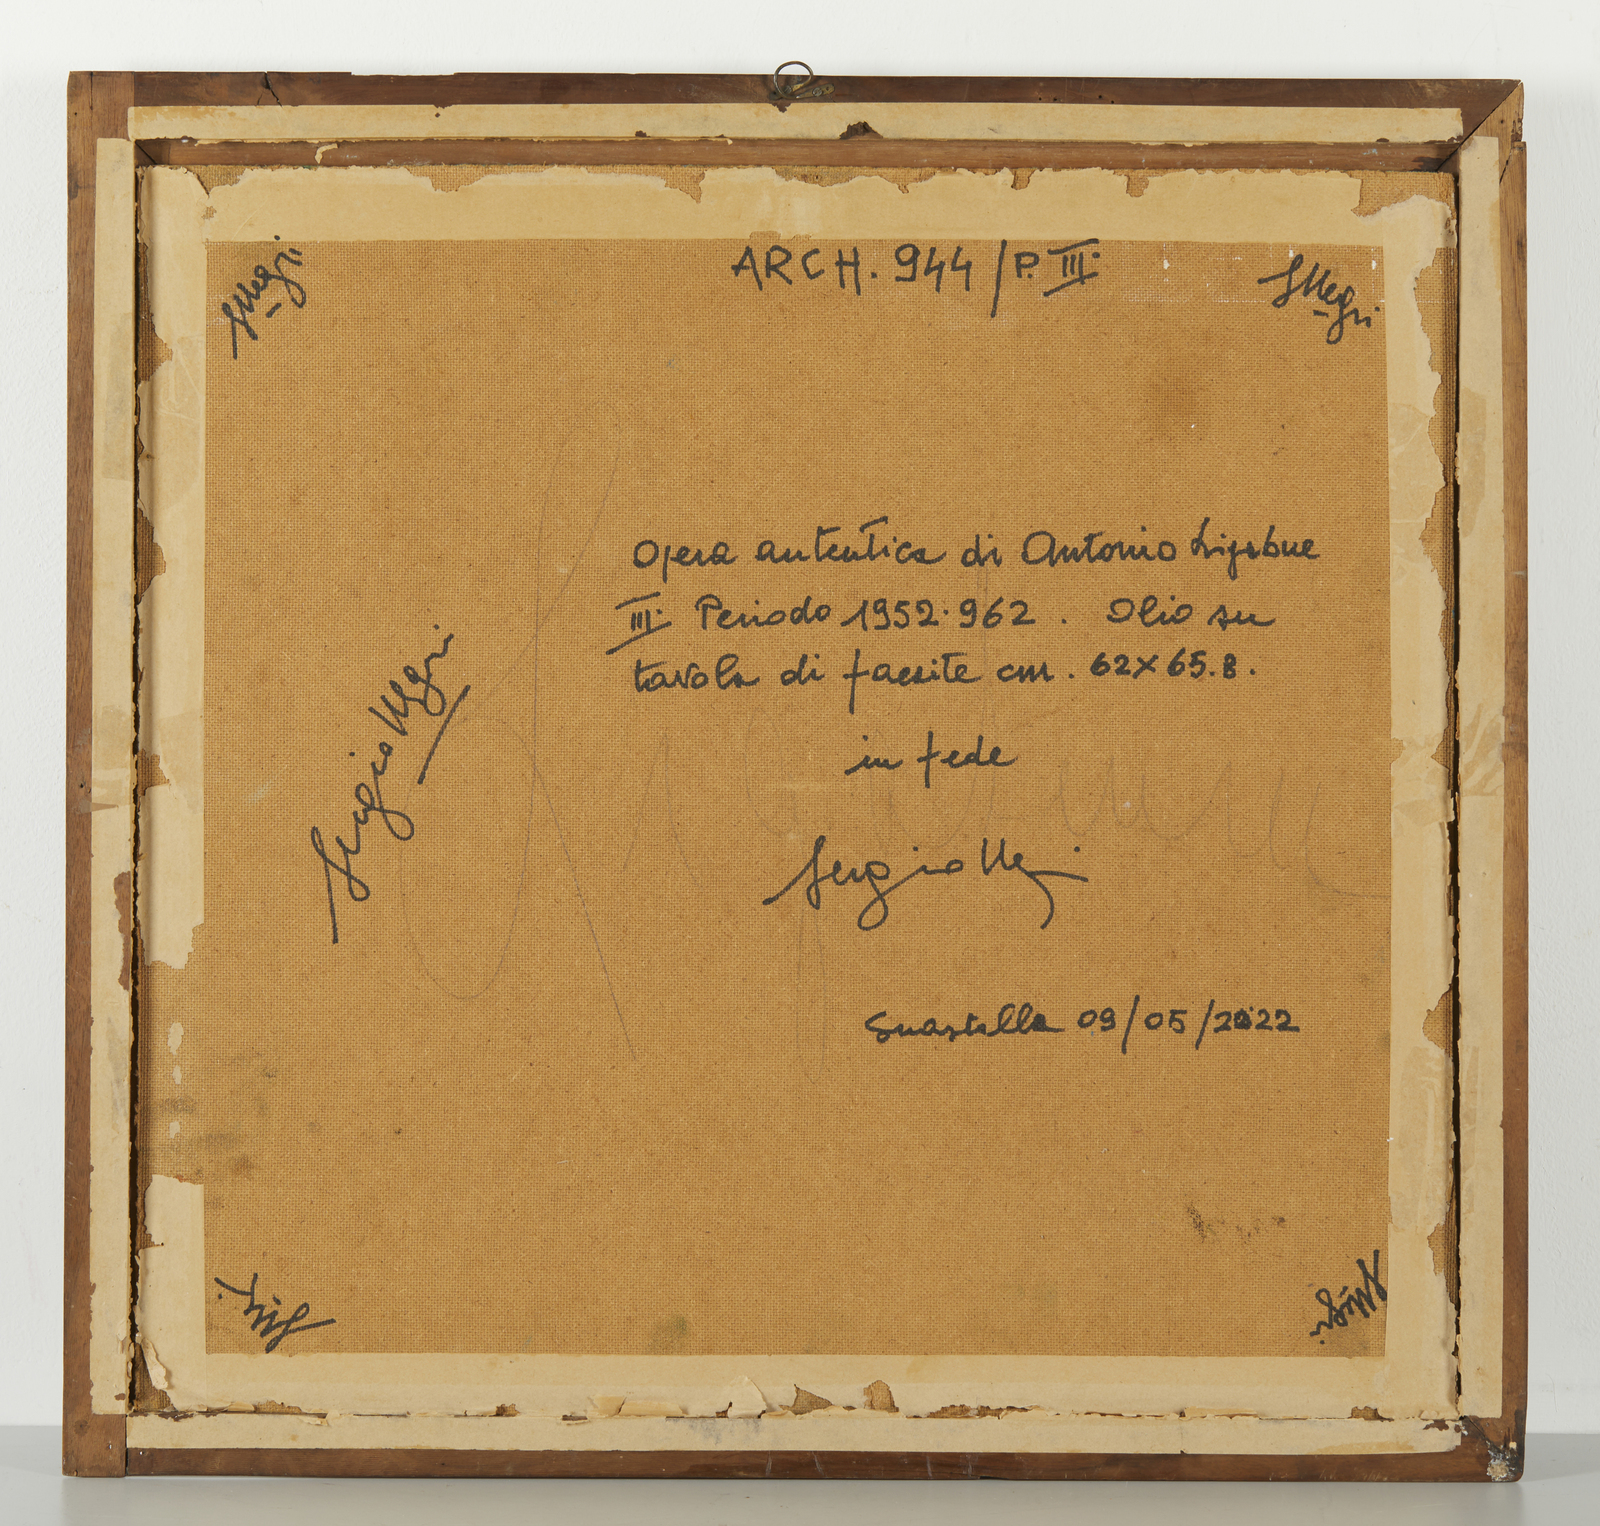 ARCH. 944/P. III:
SNegri
SNegri
Opera autentica di Antonio Ligabue
III: Periodo 1952.962. Olio su
tavola di faesite cm. 62x65.8.
in fede
Sergio Negri
Sergio Negri
Guastalla 09/05/2022
SNegri